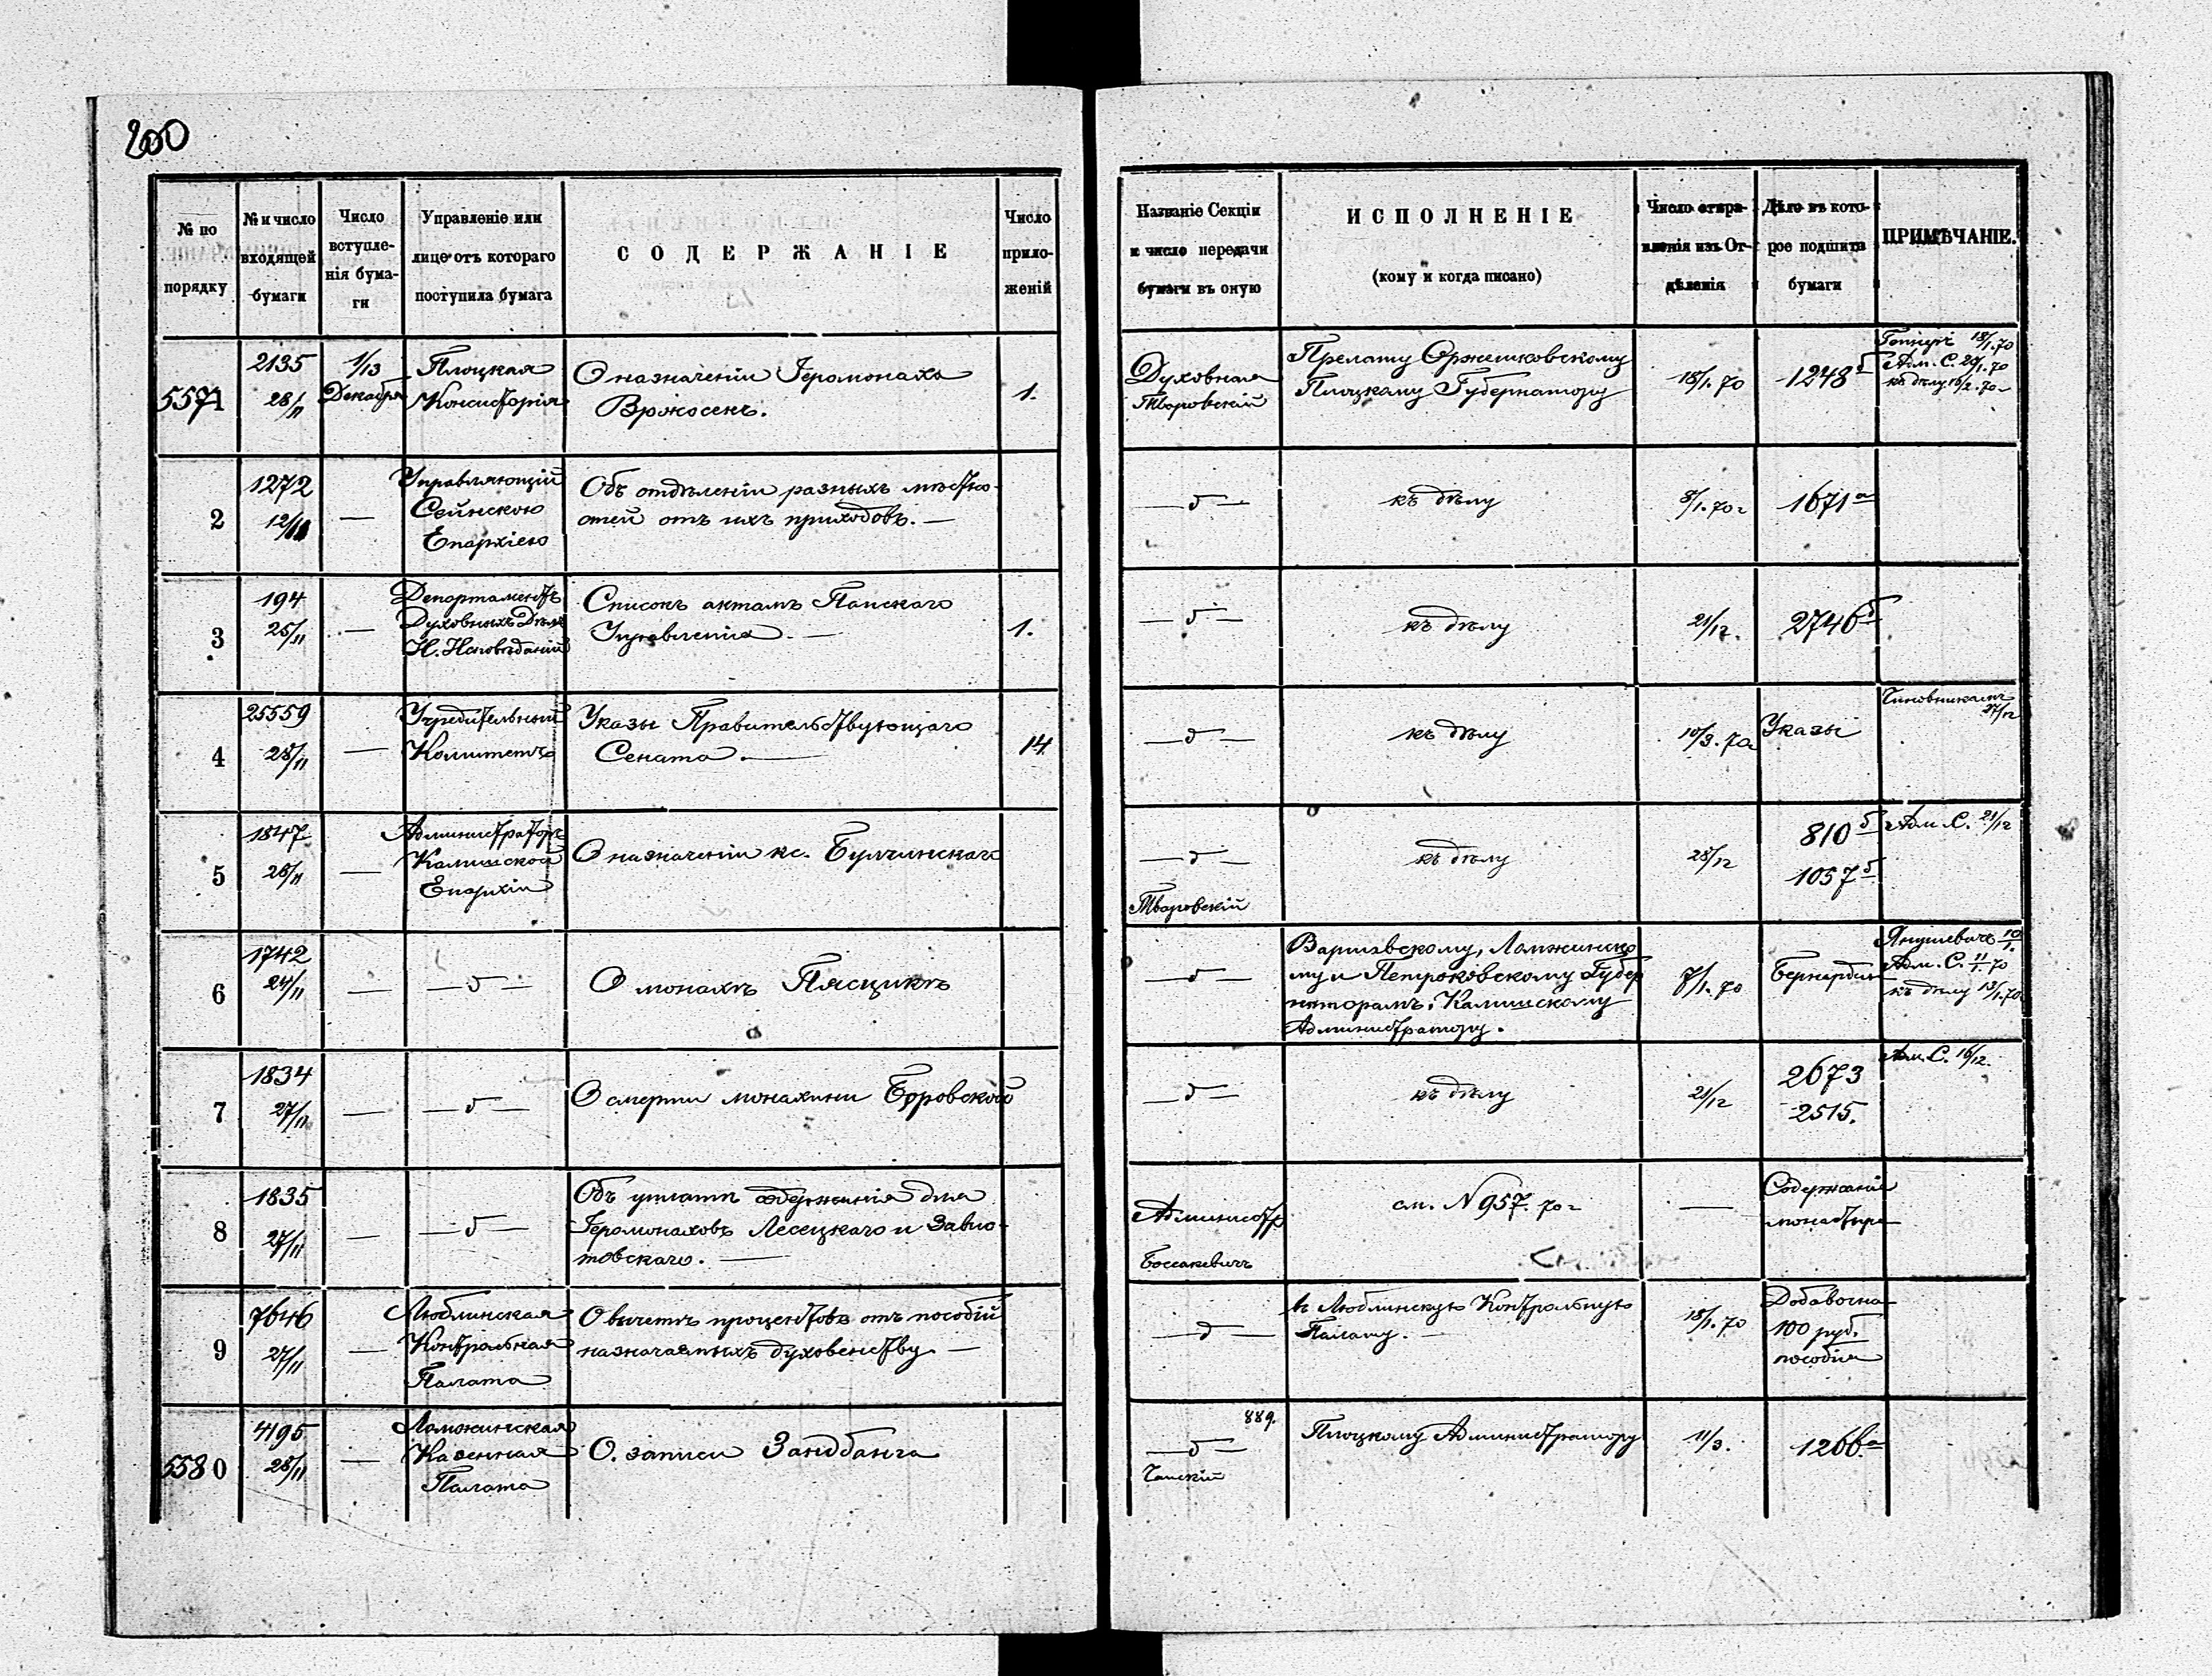 200
№ по порядку
№ и число входящей бумаги
Число вступленія бумаги
Управленіе или лице отъ котораго поступила бумага
СОДЕРЖАНІЕ
Число приложеній
Названіе Секціи и число передачи бумаги въ оную
ИСПОЛНЕНІЕ
(кому и когда писано)
Число отправленія изъ Отдѣленія
Дѣло въ которое подшита бумаги
ПРИМѢЧАНІЕ.
5571
2135
28/11
1/13
Декабря
Плоцкая
Консисторія
О назначеніи Іеромонаха
1.
Духовная
Тваровскій
Прелату Оржешковскому
Плоцкому Губернатору
18/1. 70
1248 б
18/1.70
Адм. С. 29/1.70
къ дѣлу 16/2.70
2
1272
12/11
—
Управляющій
Сейнскою
Епархіею
Объ отдѣленіи разныхъ мѣстно-
стей отъ ихъ приходовъ. —
— д —
къ дѣлу
8/1. 70 г
1671 а
3
194
25/11
—
Департаментъ
Духовныхъ Дѣлъ
И. Исповѣданій
Списокъ актамъ Папскаго
Управленія. —
1.
— д —
къ дѣлу
21/12.
2746 б
4
25559
28/11
—
Учредительный
Комитетъ
Указы Правительствующаго
Сената. —
14
— д —
къ дѣлу
10/3. 70
Указы
Чиновникамъ
27/12
5
1847
26/11
—
Администраторъ
Калишской
Епархіи
О назначеніи кс. Булчинскаго
— д —
Тваровскій
къ дѣлу
28/12
810 б
1057 б
Адм. С. 21/12
6
1742
24/11
—
— д —
О монахѣ Пясцикѣ
— д —
Варшавскому, Ломжинско
му и Петроковскому Губер
наторамъ, Калишскому
Администратору.
7/1. 70
Бернардин
Янушевичъ 10/1.
Адм. С. 11/1. 70
къ дѣлу 13/1.70
7
1834
27/11
—
— д —
О смерти монахини
— д —
къ дѣлу
21/12
2673
2515.
Адм. С. 16/12.
8
1835
27/11
—
— д —
Объ уплатѣ содержанія для
Іеромонаховъ Лесецкаго и Завис-
товскаго. —
Администр
Боссакевичъ
см. N 957. 70 г
—
Содержаніе
монастыря
9
7646
27/11
—
Люблинская
Контрольная
Палата
О вычетѣ процентовъ отъ пособій
назначаемыхъ духовенству —
— д —
въ Люблинскую Контрольную
Палату. —
18/1. 70
Добавочна
100 руб.
пособія
5580
4195
28/11
—
Ломжинская
Казенная
Палата
О. записи Зандбанга
889.
— д —
Чапскій
Плоцкому Администратору
11/3.
1266 а